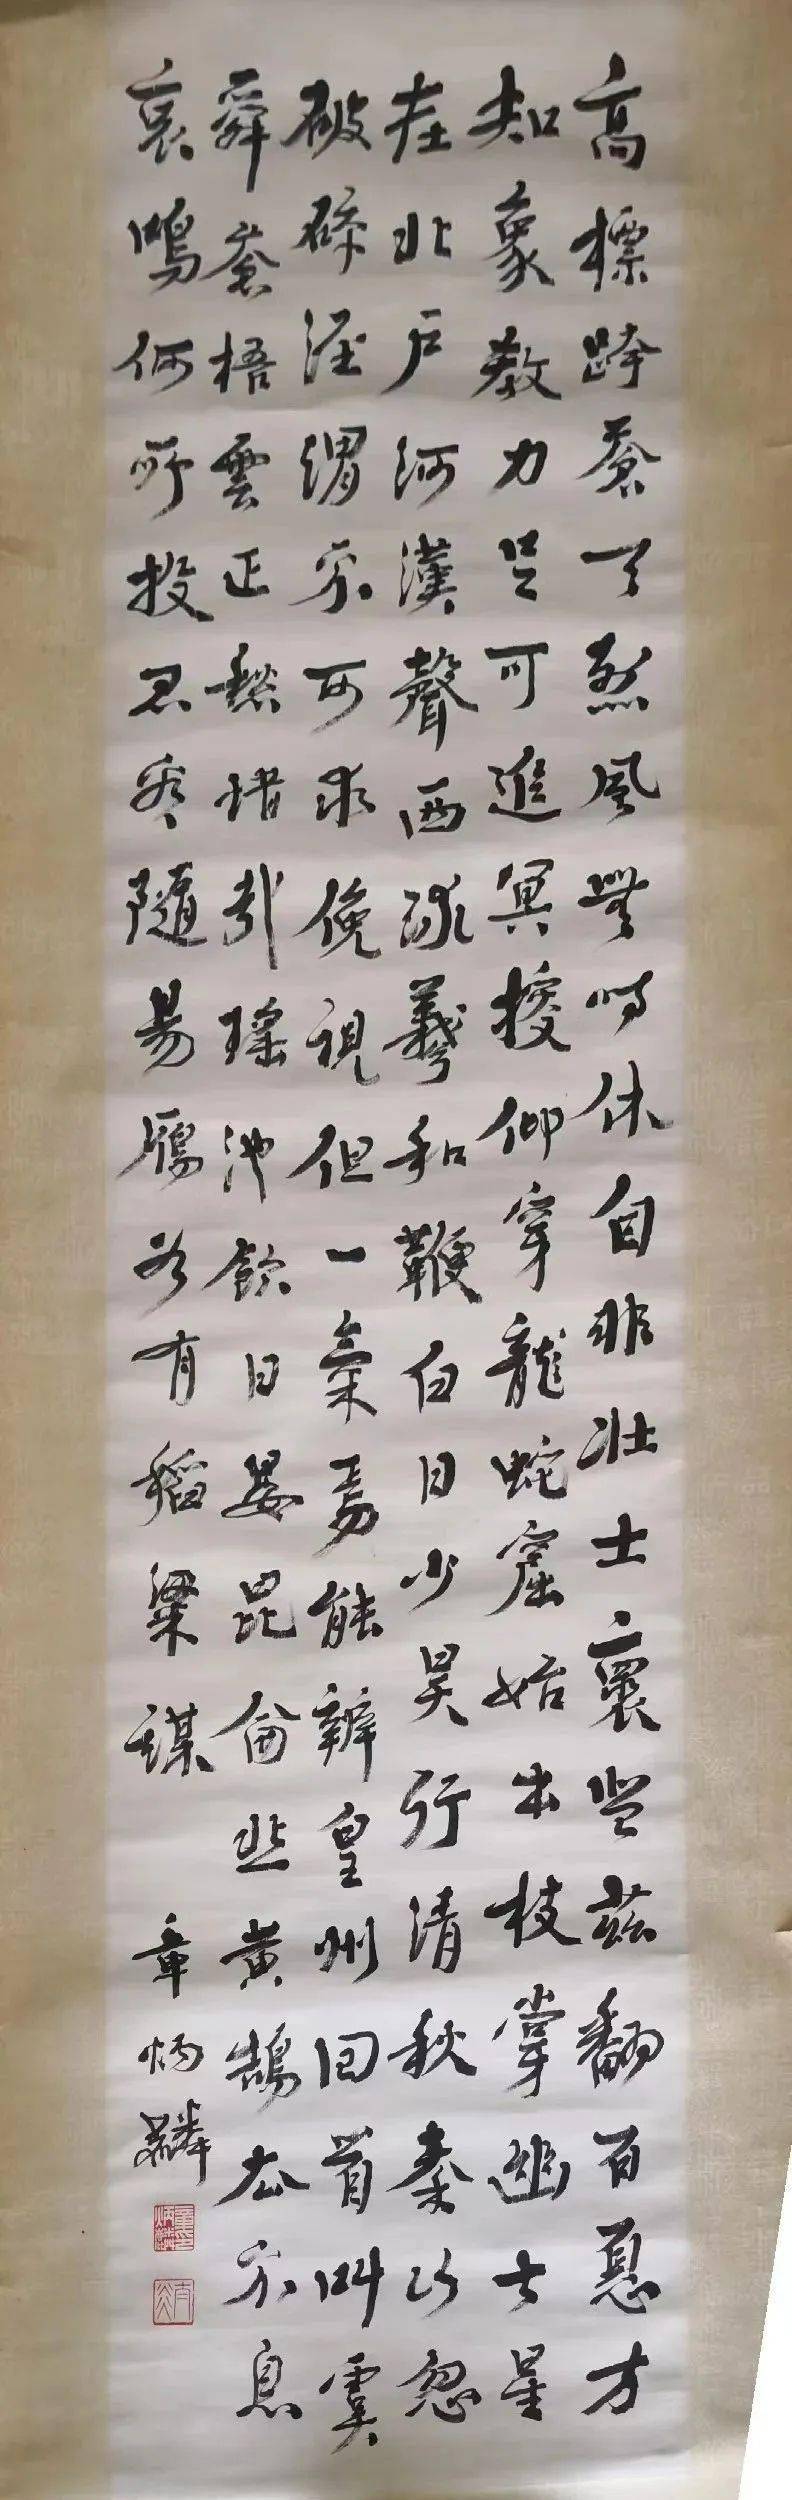 高標跨蒼天烈風無時休自非壯士褱登茲翻百憂方
知象教力足可追冥搜仰穿龍蛇窟始出枝牚幽七星
在北戶河漢聲西流羲和鞭白日少昊行清秋秦山忽
破碎涇渭不可求俛視但一氣焉能辨皇州回首叫虞
舜蒼梧雲正愁惜哉瑤池飲日晏昆侖丘黃鵠去不息
哀鳴何所投君看隨昜鴈各有稻粱謀
章炳麟
章炳麟印
太炎